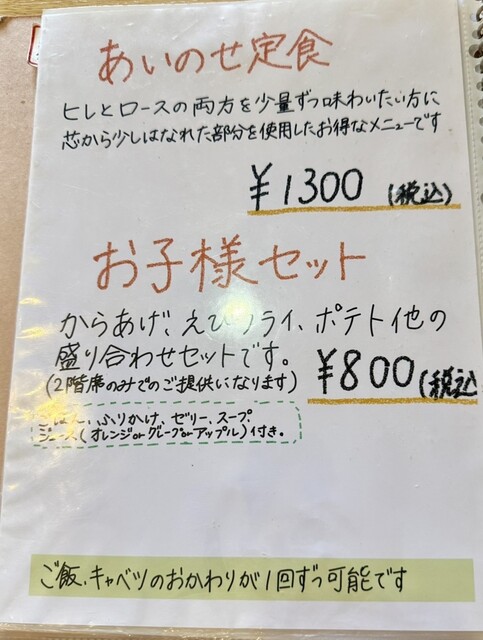 あいのせ定食
ヒレとロースの両方を少量ずつ味わいたい方に
芯から少しはなれた部分を使用したお得なメニューです
¥1300(税込)
お子様セット
からあげ、えびフライ、ポテト他の
盛り合わせセットです。
(2階席のみでのご提供になります)
¥800(税込
ごはん、ふりかけ、ゼリー、スープ
ジュース(オレンジorグレープorアップル)付き。
ご飯、キャベツのおかわりが1回ずつ可能です